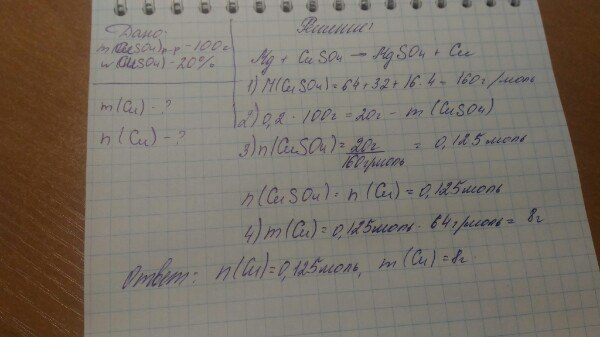 Дано:
m(CuSO4)р-р - 100г
w(CuSO4) - 20%
m(Cu) - ?
n(Cu) - ?
Решение:
Mg + CuSO4 — MgSO4 + Cu
1) M(CuSO4) = 64 + 32 + 16 · 4 = 160г/моль
2) 0,2 · 100г = 20г - m(CuSO4)
3) n(CuSO4) = 20г / 160г/моль = 0,125 моль
n(CuSO4) = n(Cu) = 0,125моль
4) m(Cu) = 0,125моль · 64г/моль = 8г
Ответ: n(Cu) = 0,125моль, m(Cu) = 8г.